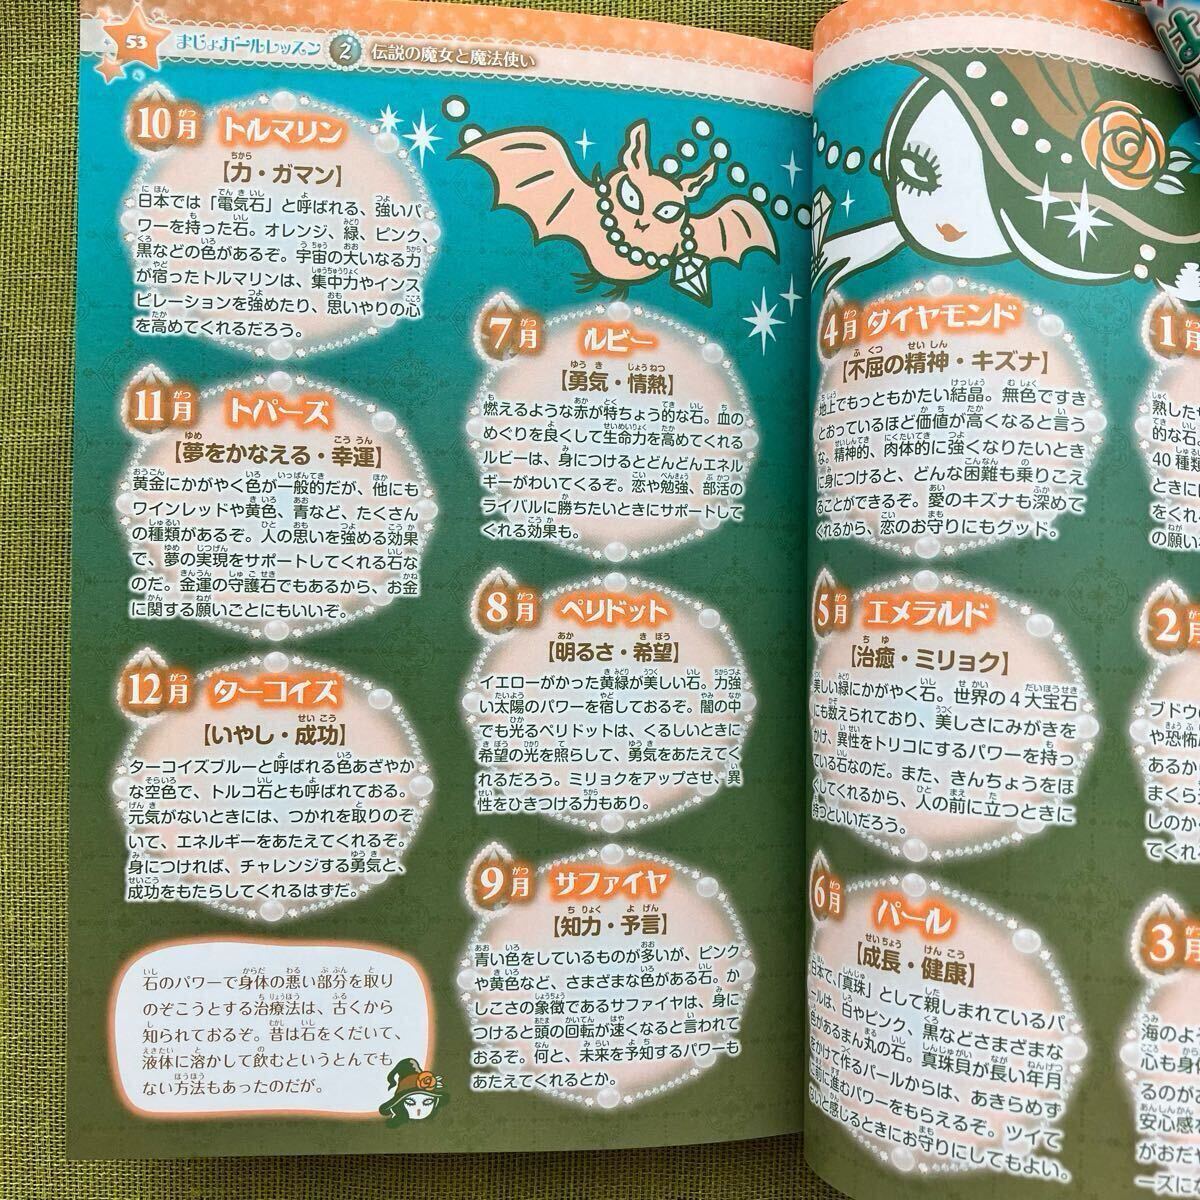 53
まじょガールレッスン 2 伝説の魔女と魔法使い
10月 トルマリン
【力・ガマン】
日本では「電気石」と呼ばれる、強いパ
ワーを持った石。オレンジ、緑、ピンク、
黒などの色があるぞ。宇宙の大いなる力
が宿ったトルマリンは、集中力やインス
ピレーションを強めたり、思いやりの心
を高めてくれるだろう。
11月 トパーズ
【夢をかなえる・幸運】
黄金にかがやく色が一般的だが、他にも
ワインレッドや黄色、青など、たくさん
の種類があるぞ。人の思いを強める効果
で、夢の実現をサポートしてくれる石な
のだ。金運の守護石でもあるから、お金
に関する願いごとにもいいぞ。
12月 ターコイズ
【いやし・成功】
ターコイズブルーと呼ばれる色あざやか
な空色で、トルコ石とも呼ばれておる。
元気がないときには、つかれを取りのぞ
いて、エネルギーをあたえてくれるぞ。
身につければ、チャレンジする勇気と、
成功をもたらしてくれるはずだ。
石のパワーで身体の悪い部分を取り
のぞこうとする治療法は、古くから
知られておるぞ。昔は石をくだいて、
液体に溶かして飲むというとんでも
ない方法もあったのだが。
7月 ルビー
【勇気・情熱】
燃えるような赤が特ちょう的な石。血の
めぐりを良くして生命力を高めてくれる
ルビーは、身につけるとどんどんエネル
ギーがわいてくるぞ。恋や勉強、部活の
ライバルに勝ちたいときにサポートして
くれる効果も。
8月 ペリドット
【明るさ・希望】
イエローがかった黄緑が美しい石。力強
い太陽のパワーを宿しておるぞ。闇の中
でも光るペリドットは、くるしいときに
希望の光を照らして、勇気をあたえてく
れるだろう。ミリョクをアップさせ、異
性をひきつける力もあり。
9月 サファイヤ
【知力・予言】
青い色をしているものが多いが、ピンク
や黄色など、さまざまな色がある石。か
しこさの象徴であるサファイヤは、身に
つけると頭の回転が速くなると言われて
おるぞ。何と、未来を予知するパワーも
あたえてくれるとか。
4月 ダイヤモンド
【不屈の精神・キズナ】
地上でもっともかたい結晶。無色ですき
とおっているほど価値が高くなると言う
な。精神的、肉体的に強くなりたいとき
に身につけると、どんな困難も乗りこえ
ることができるぞ。愛のキズナも深めて
くれるから、恋のお守りにもグッド。
5月 エメラルド
【治癒・ミリョク】
美しい緑にかがやく石。世界の4大宝石
にも数えられており、美しさにみがきを
かけ、異性をトリコにするパワーを持つ
ている石なのだ。また、きんちょうをほ
ぐしてくれるから、人の前に立つときに
持つといいだろう。
6月 パール
【成長・健康】
日本で、「真珠」として親しまれているパ
ールは、白やピンク、黒などさまざまな
色があるまん丸の石。真珠貝が長い年月
をかけて作るパールからは、あきらめず
に前に進むパワーをもらえるぞ。ツイて
ないと感じるときにお守りにしてもよい。
1月
熟した
的な石
40種類
ときに
をくれ
の願い
2
ブドウの
や恐怖
あるから
まくら
しのか
てくれ
3
海のよ
心も身体
るのが
安心感を
がおだや
ーズにな